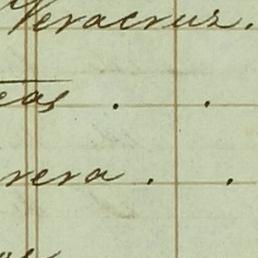 Veracruz.
eas . .
rera . .
os